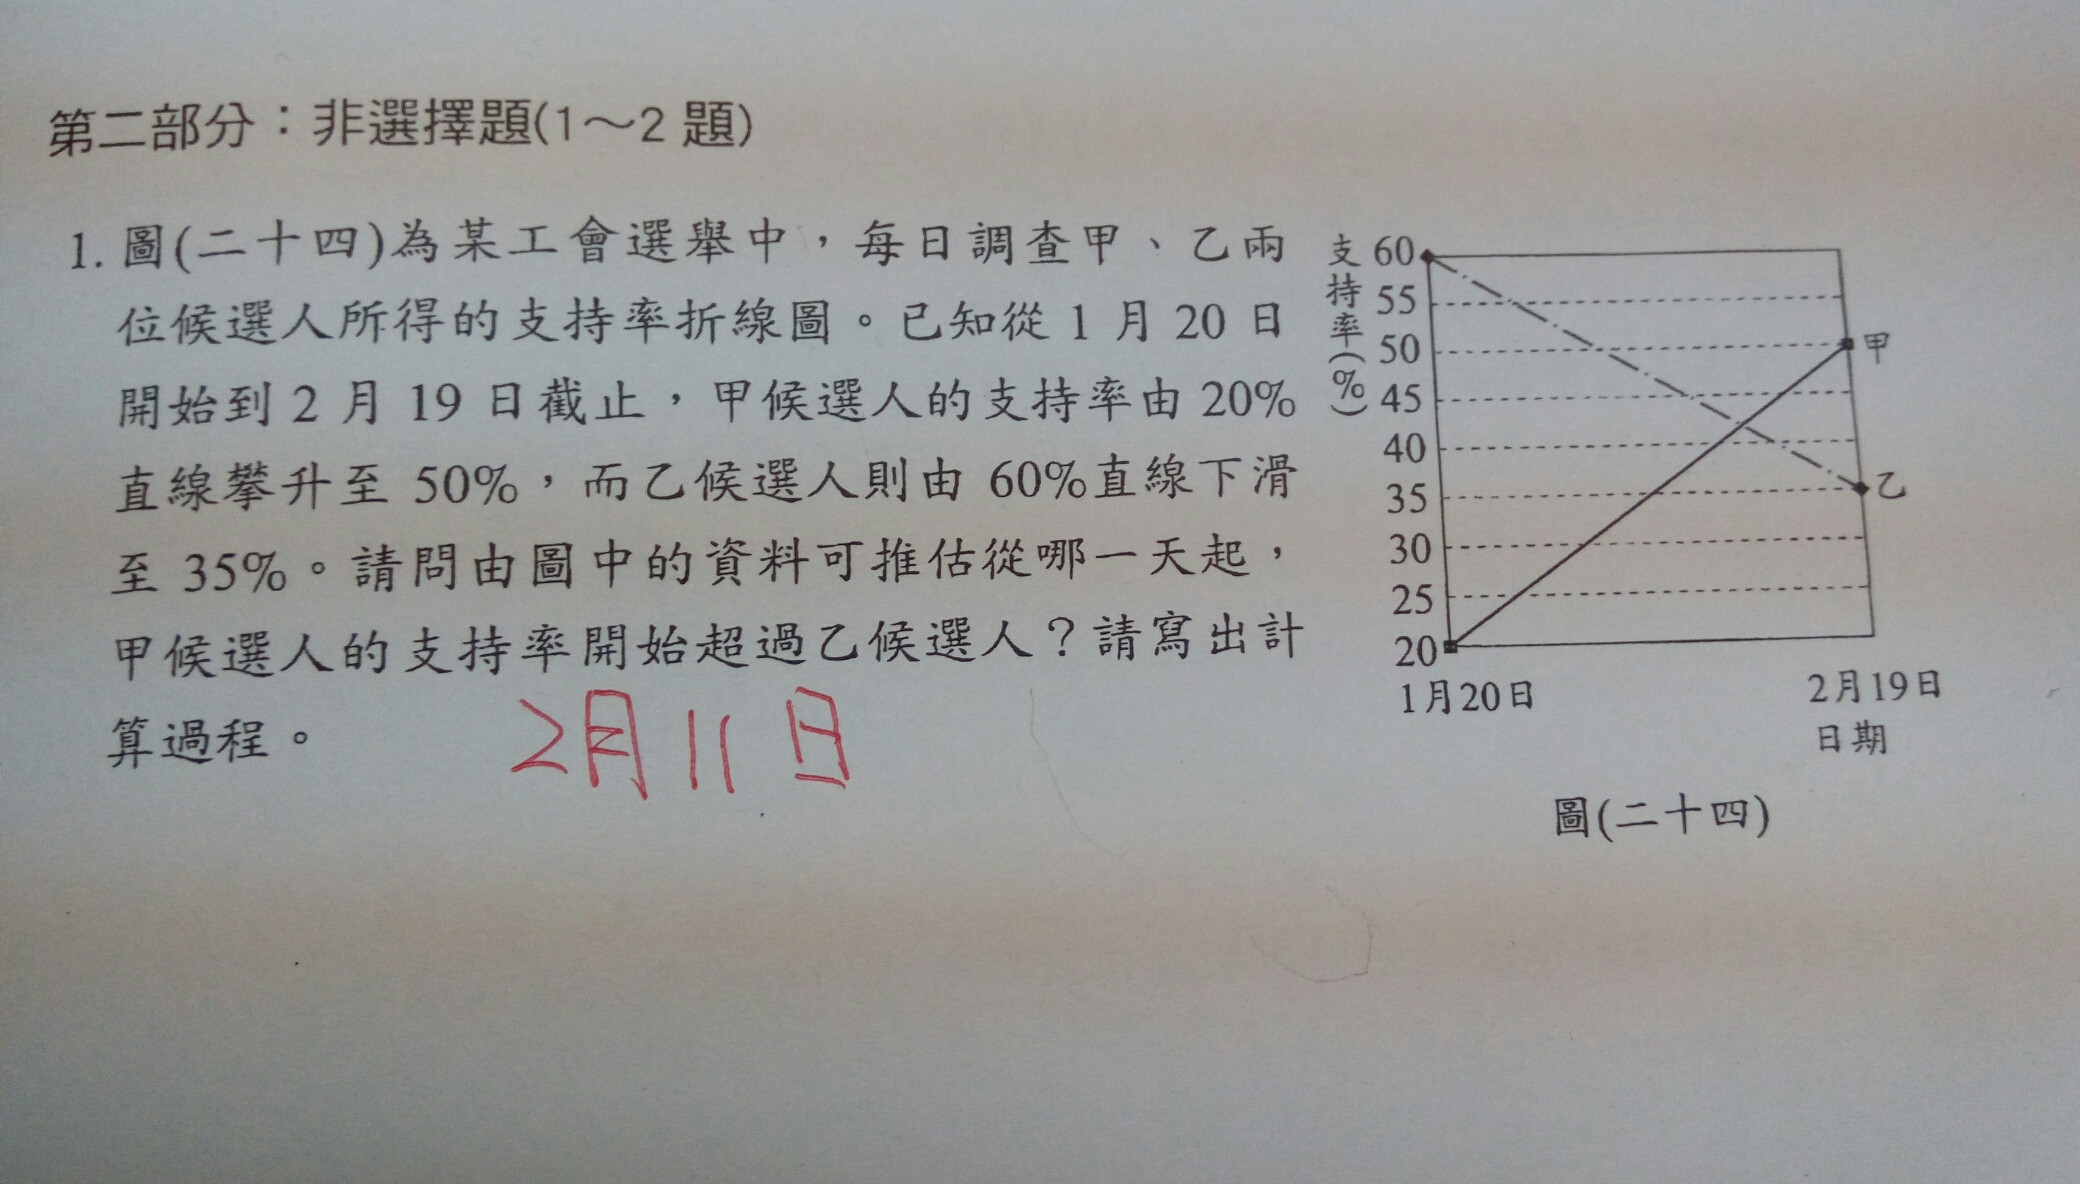 第二部分：非選擇題(1～2 題)
1. 圖(二十四)為某工會選舉中，每日調查甲、乙兩
位候選人所得的支持率折線圖。已知從 1 月 20 日
開始到 2 月 19 日截止，甲候選人的支持率由 20%
直線攀升至 50%，而乙候選人則由 60%直線下滑
至 35%。請問由圖中的資料可推估從哪一天起，
甲候選人的支持率開始超過乙候選人？請寫出計
算過程。
2月11日
支持率(%)
60
55
50
45
40
35
30
25
20
甲
乙
1月20日
2月19日
日期
圖(二十四)